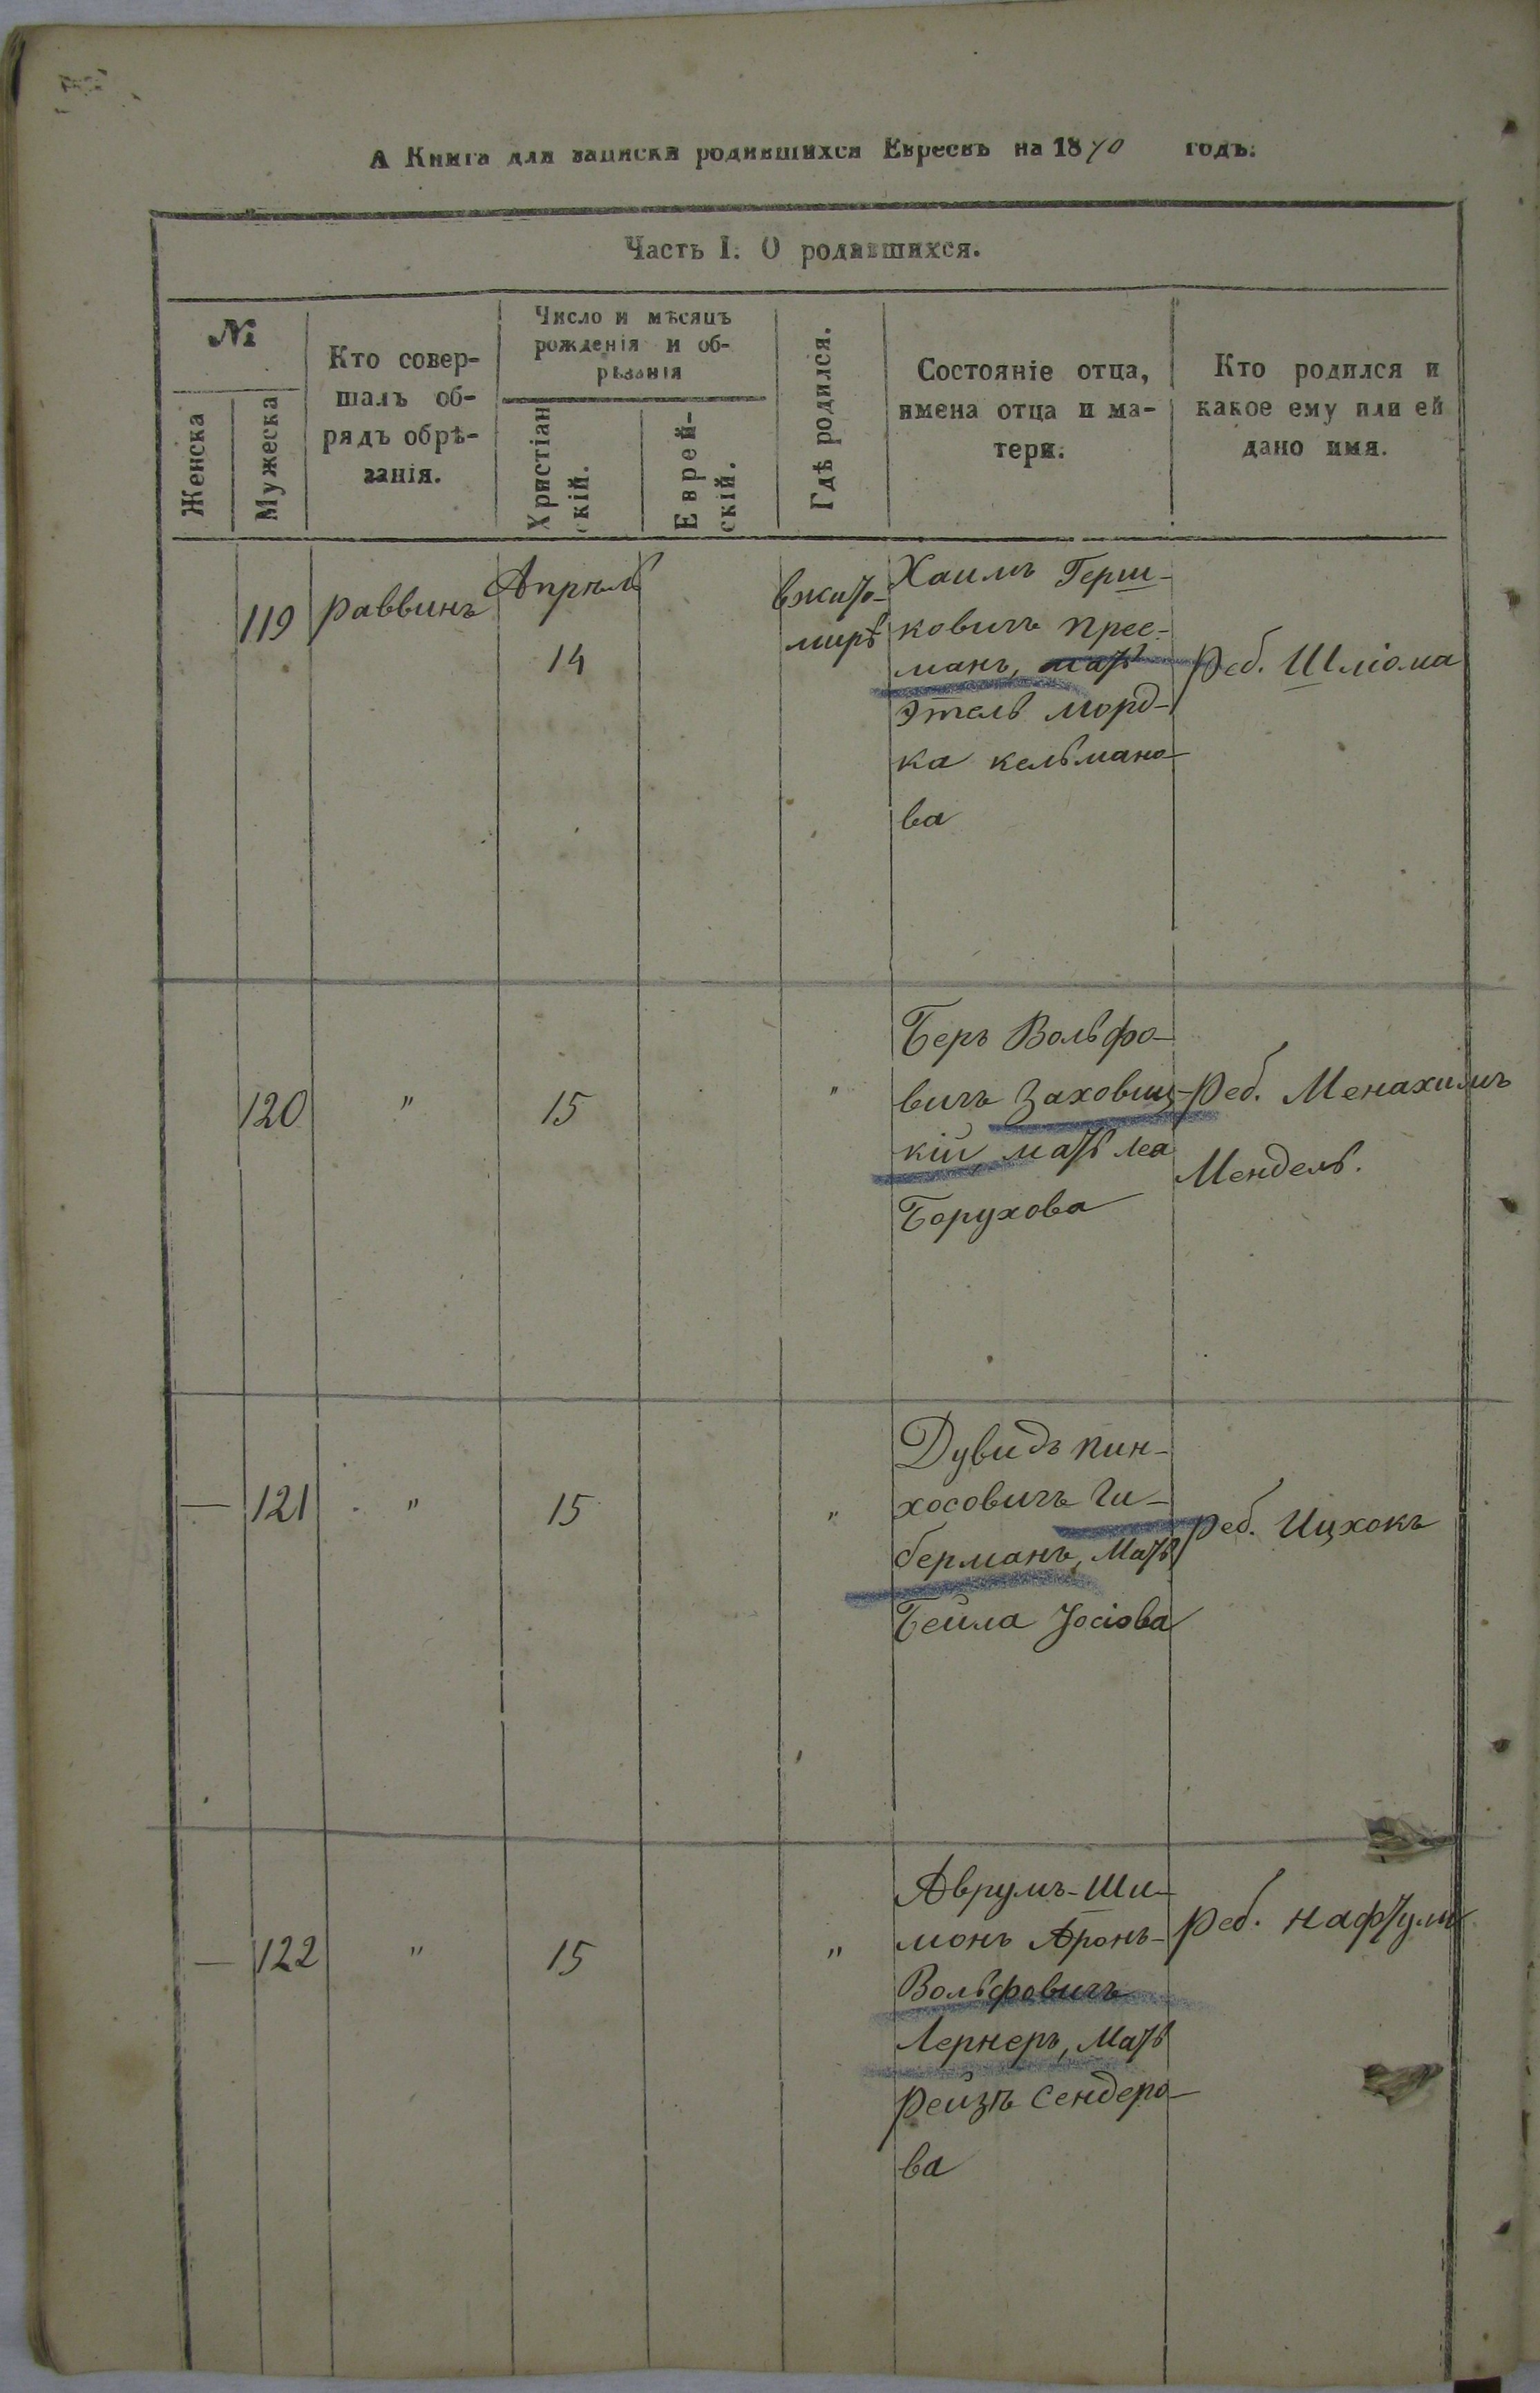 А Книга для записки родившихся Евреевъ на 1870 годъ.
Часть I. О родившихся.
№
Женска
Мужеска
Кто совер-
шалъ об-
рядъ обрѣ-
занія.
Число и мѣсяцъ
рожденія и об-
рѣзанія
Христіан
скій.
Еврей-
скій.
Гдѣ родился.
Состояніе отца,
имена отца и ма-
тери.
Кто родился и
какое ему или ей
дано имя.
119
раввинъ
Апрѣль
14
вжито-
мирѣ
Хаимъ Герш-
ковичъ прес-
манъ, мать
Этель морд-
ка кельмано-
ва
Реб. Шліома
120
"
15
"
Беръ Вольфо-
вичъ Заховщ-
кій, мать Леа
Борухова
Реб. Менахимъ
Мендель.
— 121
"
15
"
Дувидъ пин-
хосовичъ Ги-
берманъ, Мать
Бейла Iосіова
Реб. Ицхокъ
— 122
"
15
"
Аврумъ-Ши-
монъ Аронъ-
Вольфовичъ
Лернеръ, Мать
Рейзъ Сендеро-
ва
Реб. Нафтули